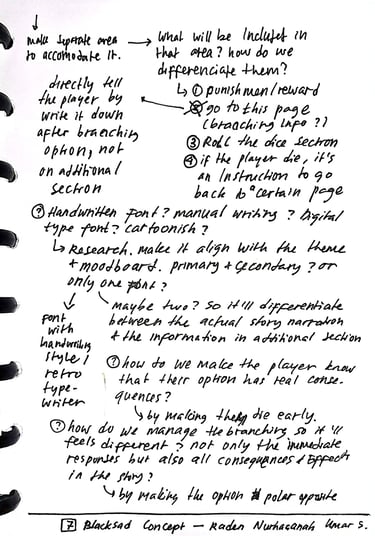 make separate area
to accomodate it.
What will be included in
that area? how do we
differenciate them?
① punishment/reward
② go to this page
(branching info ??)
③ Roll the dice section
④ if the player die, it's
an Instruction to go
back to certain page
directly tell
the player by
write it down
after branching
option, not
on additional
section
? Handwritten font? manual writing? Digital
type font? cartoonish?
Research. make it align with the theme
+ moodboard. primary + secondary? or
only one font?
font
with
handwriting
style /
retro
type-
writer
maybe two? So it'll differentiate
between the actual story narration
& the information in additional section
? how do we make the player know
that their option has real conse-
quences?
by making they die early.
? how do we manage the branching so it'll
feels different? not only the immediate
responses but also all consequences & effects
in the story?
by making the option polar opposite
7 Blacksad Concept — Raden Nurhasanah Umar S.